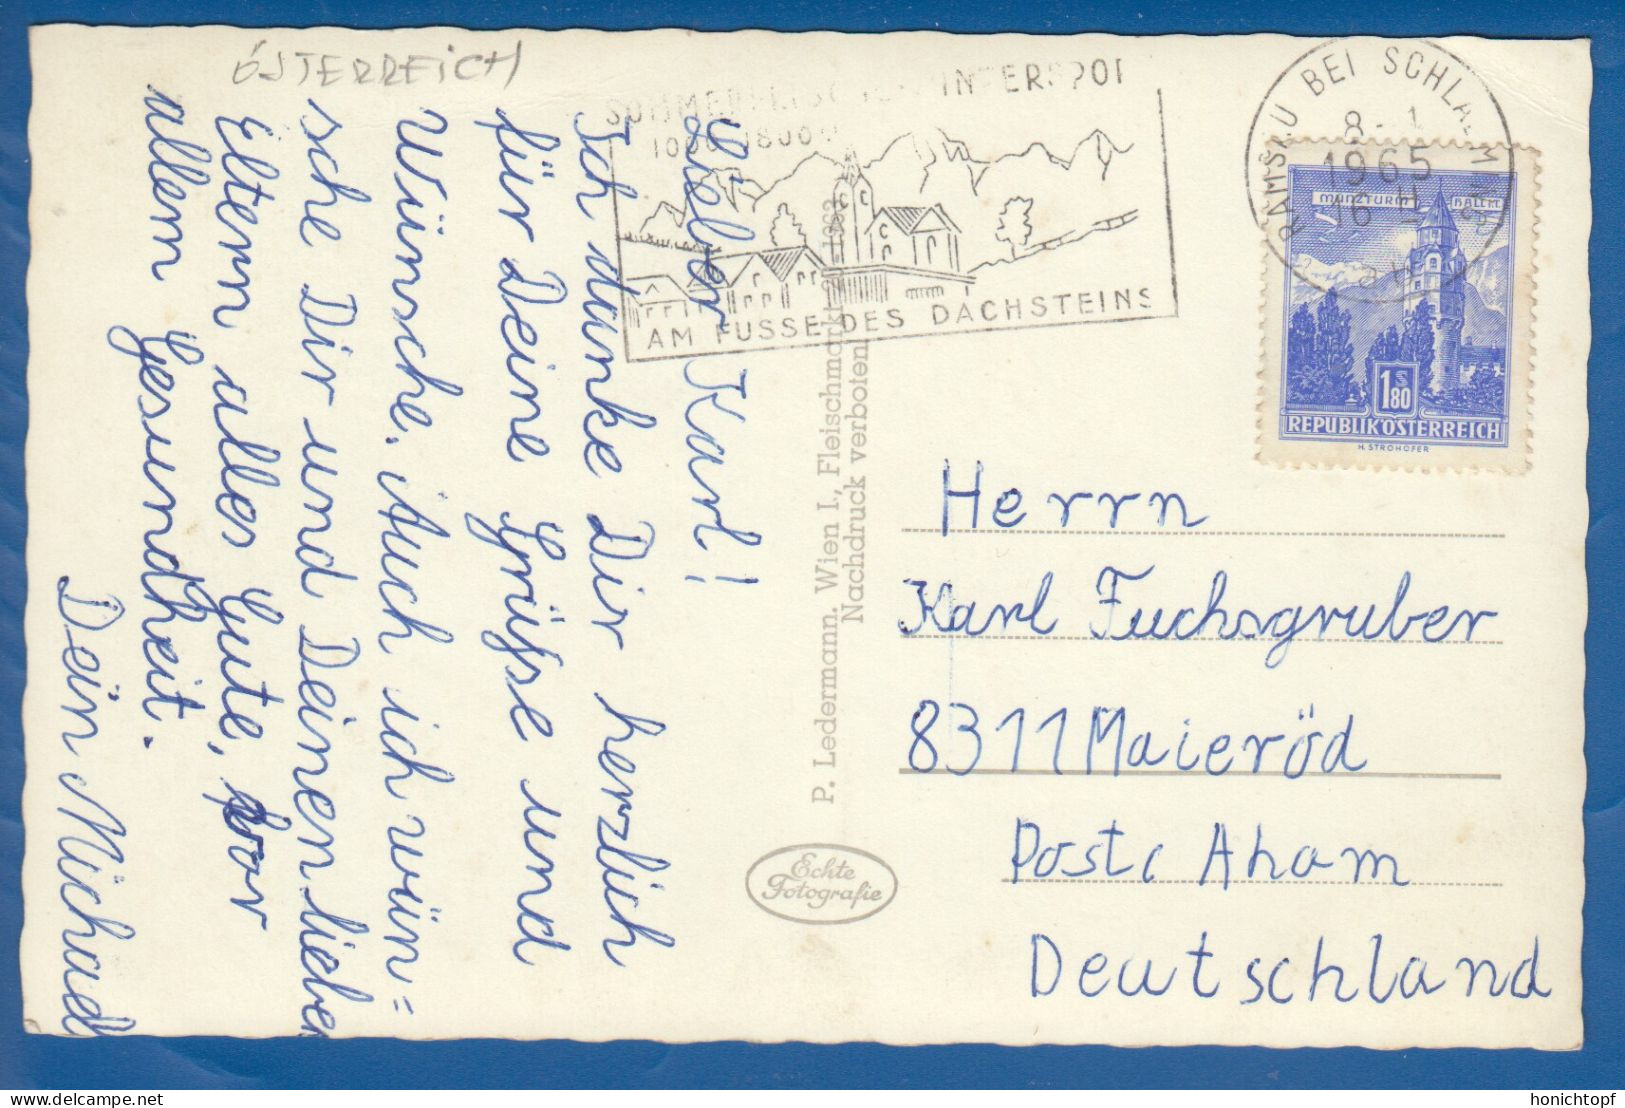 ÖSTERREICH
Lieber Karl!
Ich danke Dir herzlich
für Deine Grüße und
Wünsche. Auch ich wün=
sche Dir und Deinen lieben
Eltern alles Gute, vor
allem Gesundheit.
Dein Michael
1000-1800
AM FUSSE DES DACHSTEINS
RAMSAU BEI SCHLADMING
8-1
1965
16
MÜNZTURM HALL I. T.
1.80
S
REPUBLIK ÖSTERREICH
H. STROHOFER
P. Ledermann. Wien I., Fleischmarkt 20 1963
Nachdruck verboten
Echte
Fotografie
Herrn
Karl Fuchsgruber
8311 Maieröd
Post: Aham
Deutschland
honichtopf
delcampe.net